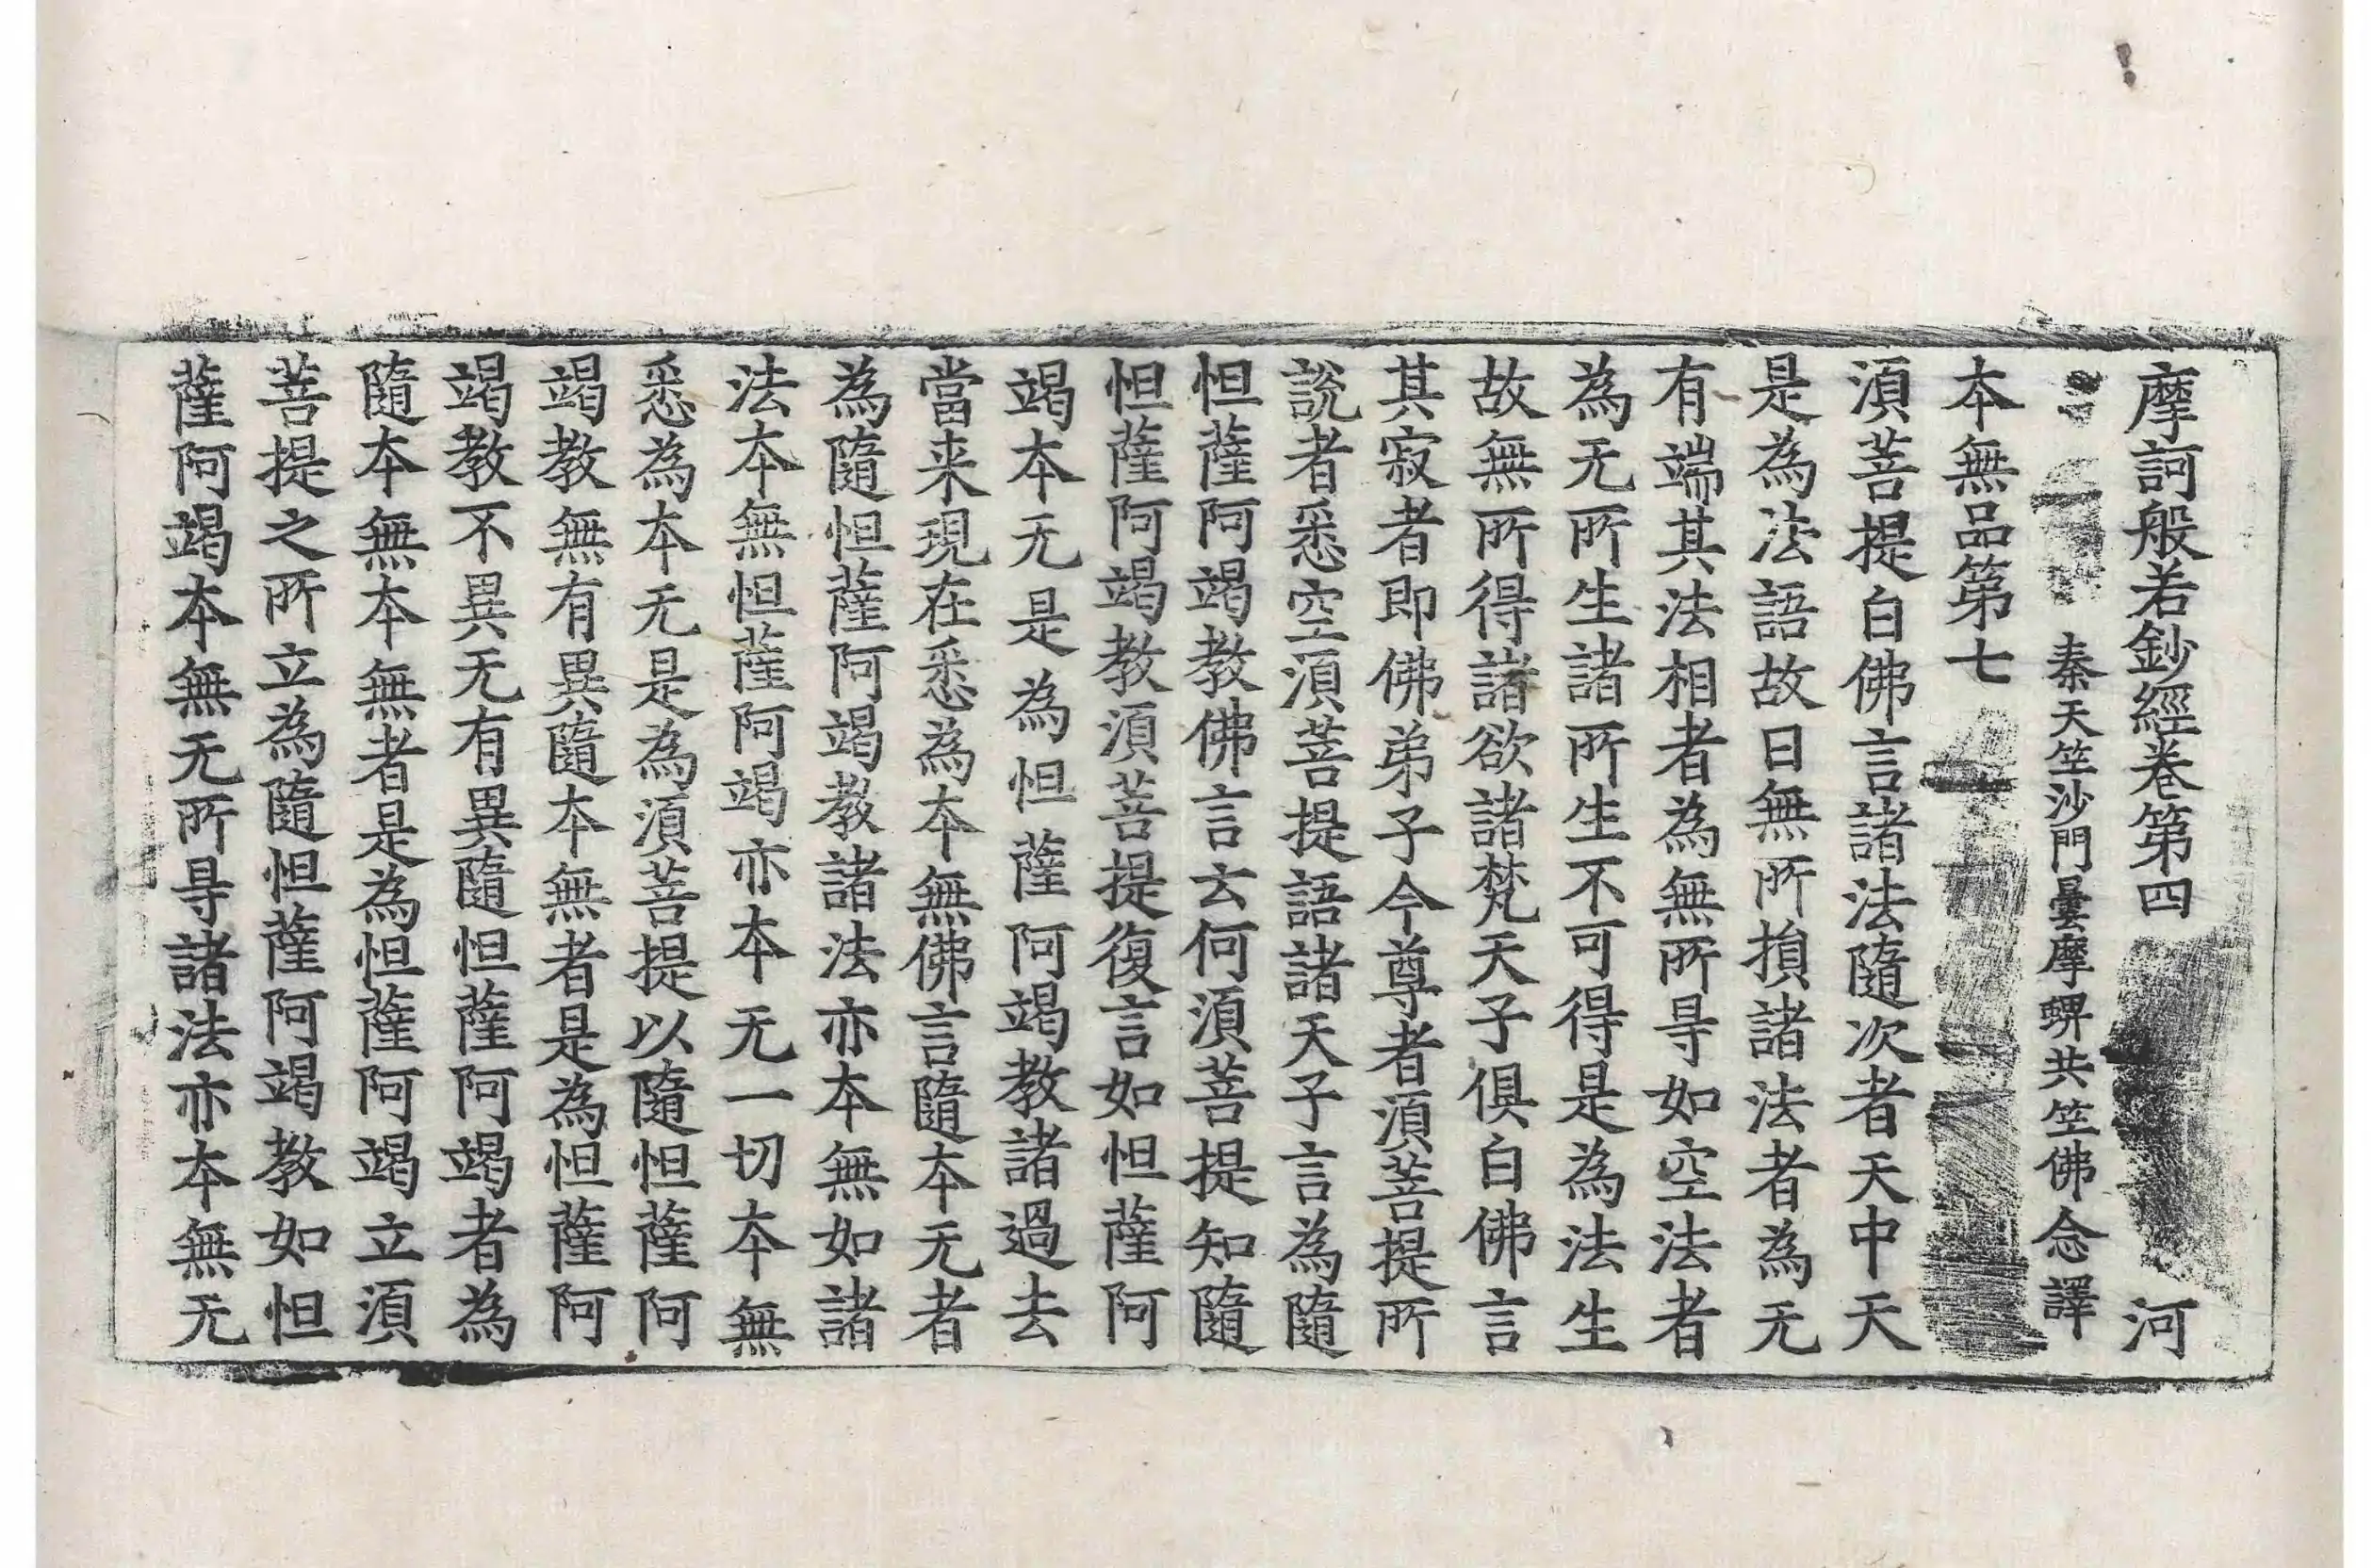 摩訶般若鈔經卷第四 河
秦天竺沙門曇摩蜱共竺佛念譯
本無品第七
湏菩提白佛言諸法隨次者天中天
是為法語故曰無所損諸法者為无
有端其法相者為無所㝵如空法者
為无所生諸所生不可得是為法生
故無所得諸欲諸梵天子俱白佛言
其寂者即佛弟子今尊者湏菩提所
說者悉空湏菩提語諸天子言為隨
怛薩阿竭教佛言云何湏菩提知隨
怛薩阿竭教湏菩提復言如怛薩阿
竭本无是為怛薩阿竭教諸過去
當来現在悉為本無佛言隨本无者
為隨怛薩阿竭教諸法亦本無如諸
法本無怛薩阿竭亦本无一切本無
悉為本无是為湏菩提以隨怛薩阿
竭教無有異隨本無者是為怛薩阿
竭教不異无有異隨怛薩阿竭者為
隨本無本無者是為怛薩阿竭立湏
菩提之所立為隨怛薩阿竭教如怛
薩阿竭本無无所㝵諸法亦本無无